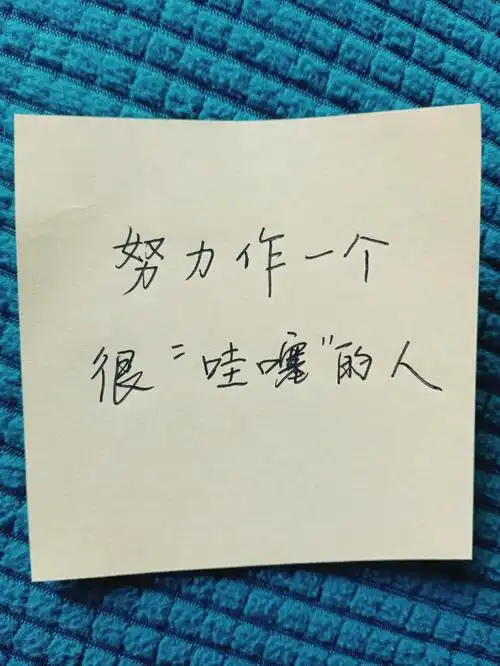 努力作一个
很“哇噻”的人